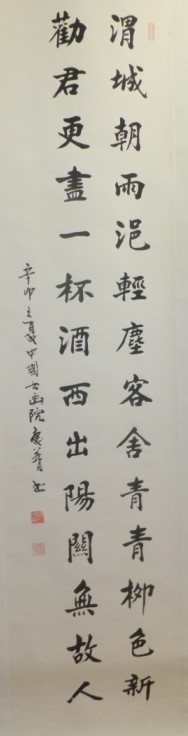 渭城朝雨浥輕塵客舍青青柳色新
勸君更盡一杯酒西出陽關無故人
辛卯之夏中國書画院